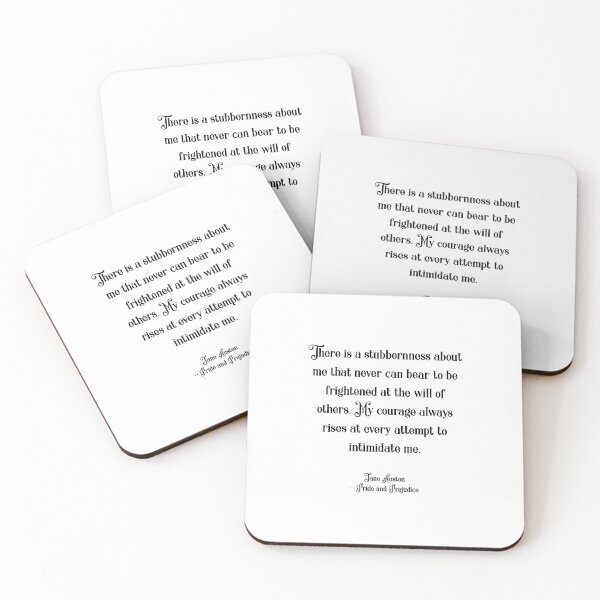 There is a stubbornness about
me that never can bear to be
frightened at the will of
others. My courage always
to
There is a stubbornness about
me that never can bear to be
frightened at the will of
others. My courage always
rises at every attempt to
intimidate me.
There is a stubbornness about
me that never can bear to be
frightened at the will of
others. My courage always
rises at every attempt to
intimidate me.
Jane Austen
- Pride and Prejudice
There is a stubbornness about
me that never can bear to be
frightened at the will of
others. My courage always
rises at every attempt to
intimidate me.
Jane Austen
- Pride and Prejudice